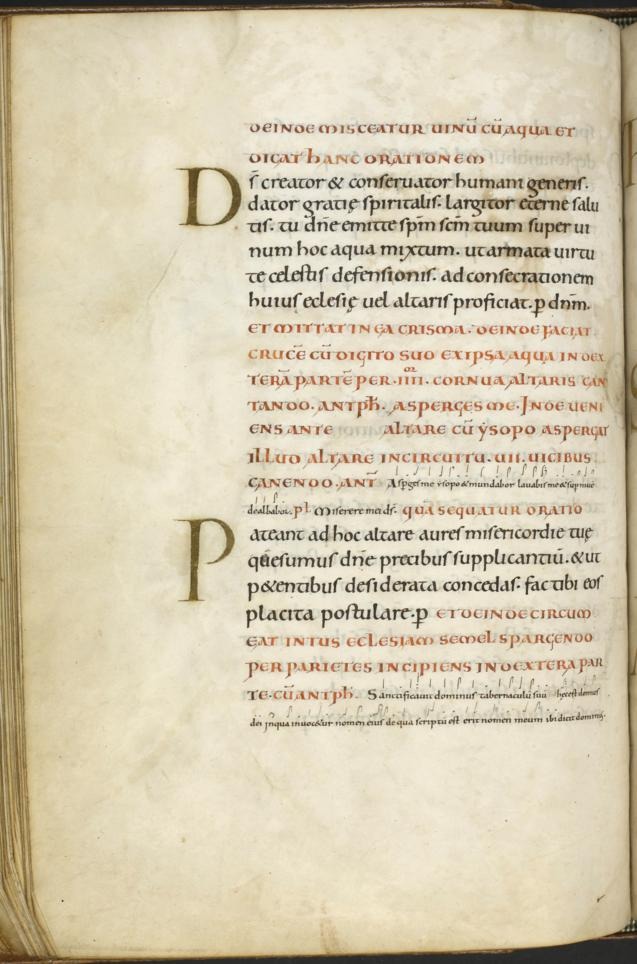 DEINDE MISCEATUR UINŪ CŪ AQUA ET
DICAT HANC ORATIONEM
Ds̄ creator & conseruator humani generis.
dator gratię spiritalis. largitor eterne salu
tis. tu dn̄e emitte spm̄ scm̄ tuum super ui
num hoc aqua mixtum. ut armata uirtu
te celestis defensionis. ad consecrationem
huius eclesię uel altaris proficiat. p̱ dnm̄.
ET MITTAT IN EA CRISMA. DEINDE FACIAT
CRUCĒ CŪ DIGITO SUO EX IPSA AQUA IN DEX
TERĀ PARTĒ PER .IIII. CORNUA ALTARIS CAN
TANDO. ANTPH̄. ASPERGES ME. INDE UENI
ENS ANTE ALTARE CŪ YSOPO ASPERGAT
ILLUD ALTARE IN CIRCUITU .UII. UICIBUS
CANENDO. ANT̄ Aspges me ysopo & mundabor lauabis me & sup niuē
dealbabor. pl̄ Miserere mei ds̄. QUĀ SEQUATUR ORATIO
Pateant ad hoc altare aures misericordie tuę
quęsumus dn̄e precibus supplicantiū. & ut
p&entibus desiderata concedas. fac tibi eos
placita postulare. p̱ ET DEINDE CIRCUM
EAT INTUS ECLESIAM SEMEL SPARGENDO
PER PARIETES INCIPIENS IN DEXTERA PAR
TE. CŪ ANTPH̄. Sanctificauit dominus tabernaculū suū hec est domus
dei in qua inuoc&ur nomen eius de qua scriptū est erit nomen meum ibi dicit dominus.